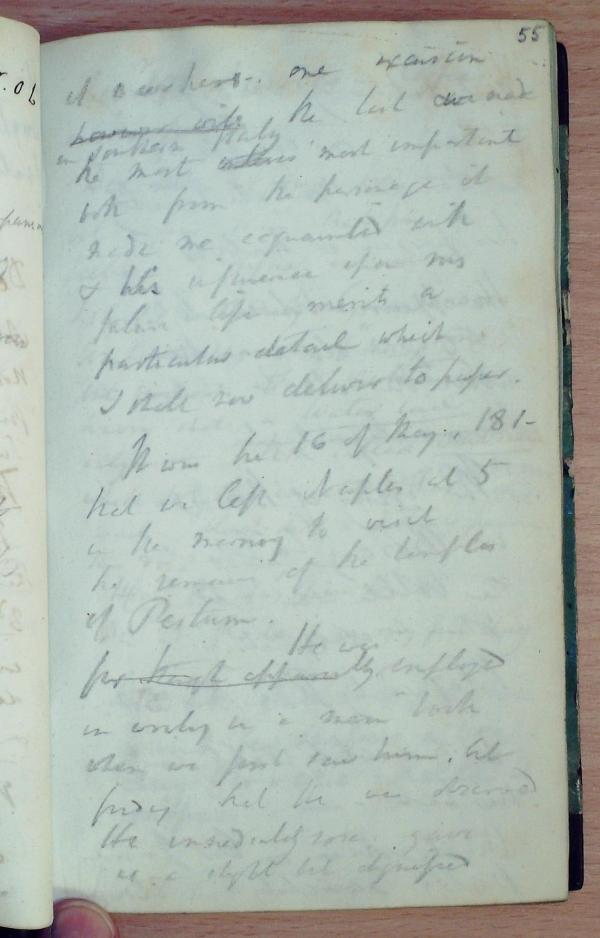 55
of a one excursion
the last we made
in Southern Italy
the most most important
both from the personage it
made me acquainted with
& his influence upon my
future life merits a
particular detail which
I shall now deliver to paper.
It was the 16 of May, 181-
that we left Naples at 5
in the morning to visit
the remains of the temples
of Pestum.
He was
for though apparently employed
in writing in a mem book
when we first saw him. but
finding that he was observed
He immediately rose gave
us a slight but dignified